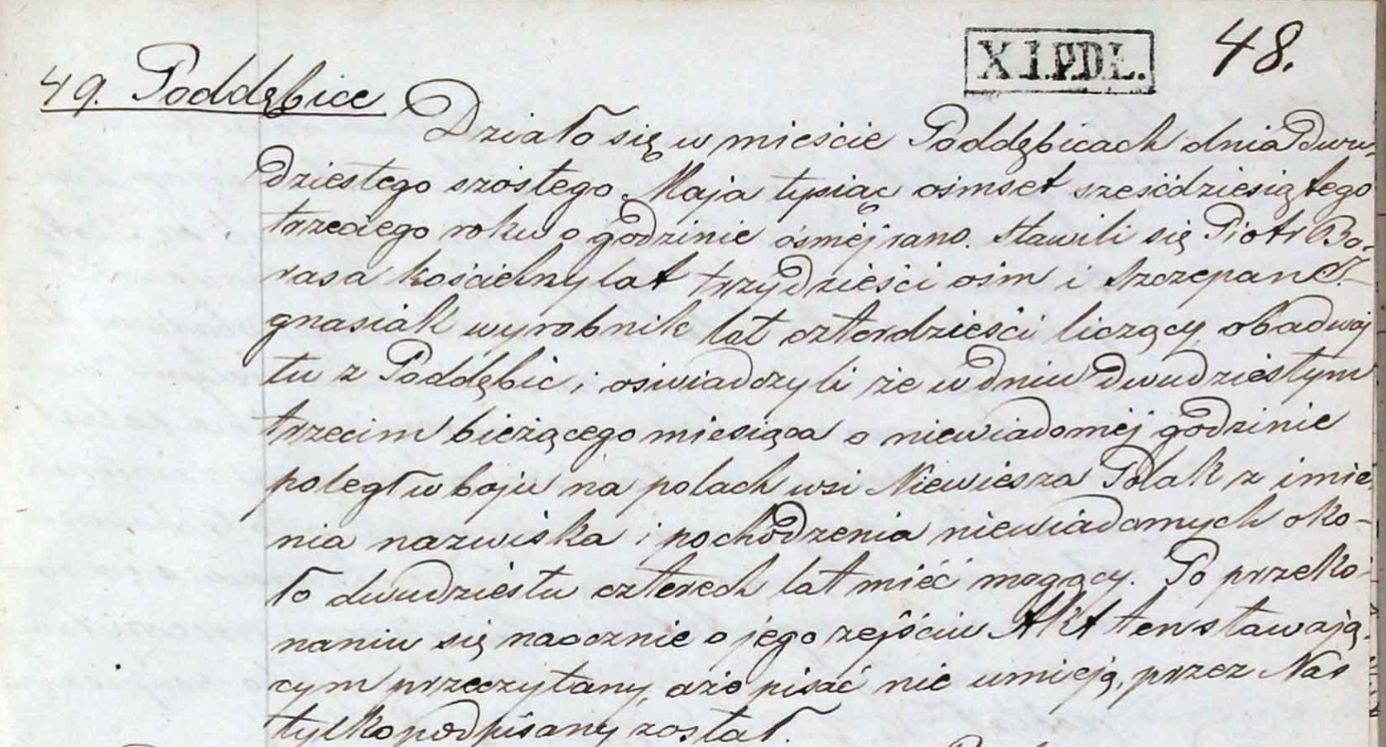 X I.P.DŁ. 48.
49. Poddębice
Działo się w mieście Poddębicach dnia dwu-
dziestego szóstego Maja tysiąc ośmset sześćdziesiątego
trzeciego roku o godzinie ósméj rano. Stawili się Piotr Bo-
rasa kościelny lat trzydzieści ośm i Szczepan I-
gnasiak wyrobnik lat czterdzieści liczący, obadwaj
tu z Poddębic i oświadczyli że w dniu dwudziestym
trzecim bieżącego miesiąca o niewiadoméj godzinie
poległ w boju na polach wsi Niewiesza Polak z imie-
nia nazwiska i pochodzenia niewiadomych oko-
ło dwudziestu czterech lat mieć mogący. Po przeko-
naniu się naocznie o jego zejściu Akt ten stawają-
cym przeczytany, a że pisać nie umieją, przez Nas
tylko podpisany został.